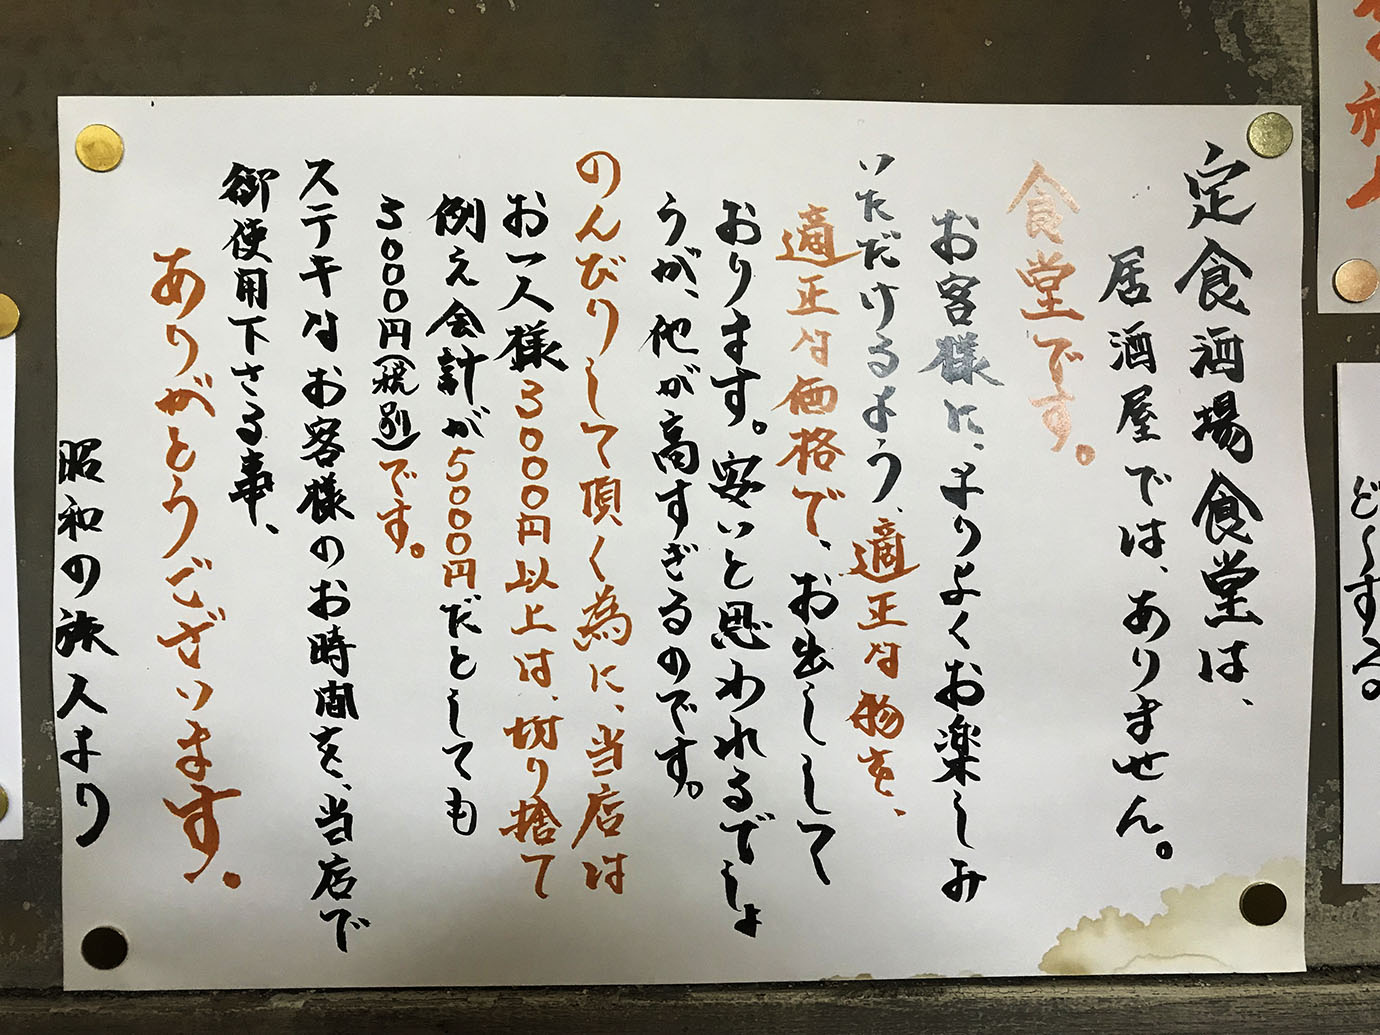 定食酒場食堂は、
居酒屋では、ありません。
食堂です。
お客様に、よりよくお楽しみ
いただけるよう、適正な物を、
適正な価格で、お出しして
おります。安いと思われるでしょ
うが、他が高すぎるのです。
のんびりして頂く為に、当店は
お一人様3000円以上は、切り捨て
例え会計が5000円だとしても
3000円(税別)です。
ステキなお客様のお時間を、当店で
御使用下さる事、
ありがとうございます。
昭和の旅人より
ど〜する。